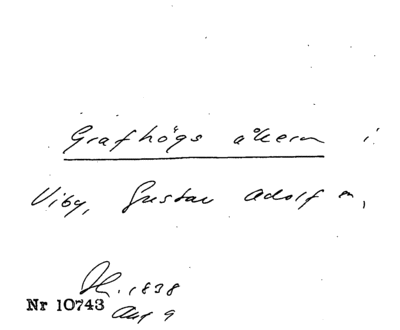 Grafhögs åkern i
Viby, Gustav Adolf m,
H. 1838
Nr 10743 Aug 9